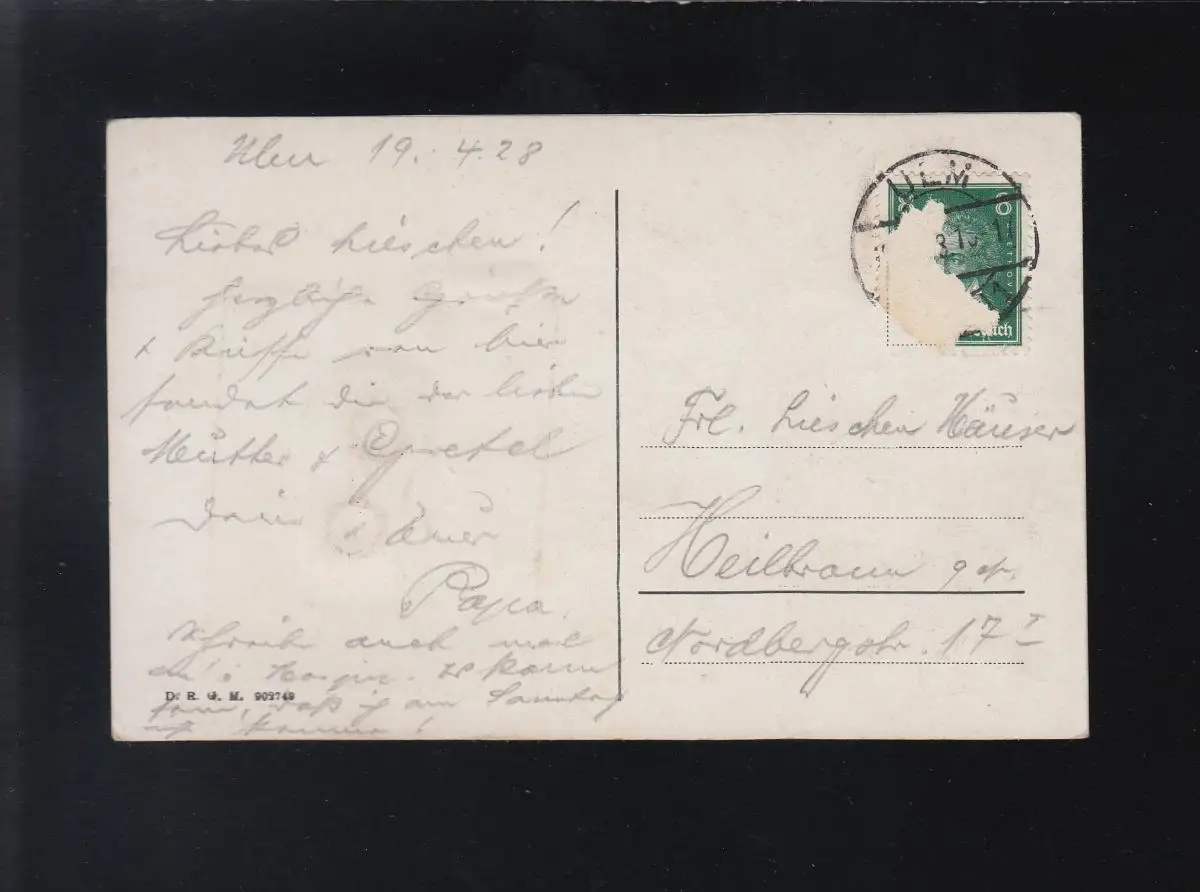 Ulm 19. 4. 28
Liebes Lieschen!
Herzliche Grüße
& Küsse von hier
sendet dir der lieben
Mutter & Gretel
Dein & Euer
Papa.
Schreibe auch mal
kann
daß ich am Sonntag
komme!
D. R. G. M. 902749
ULM
8
Frl. Lieschen Häuser
Heilbronn
Nordbergstr. 17 I